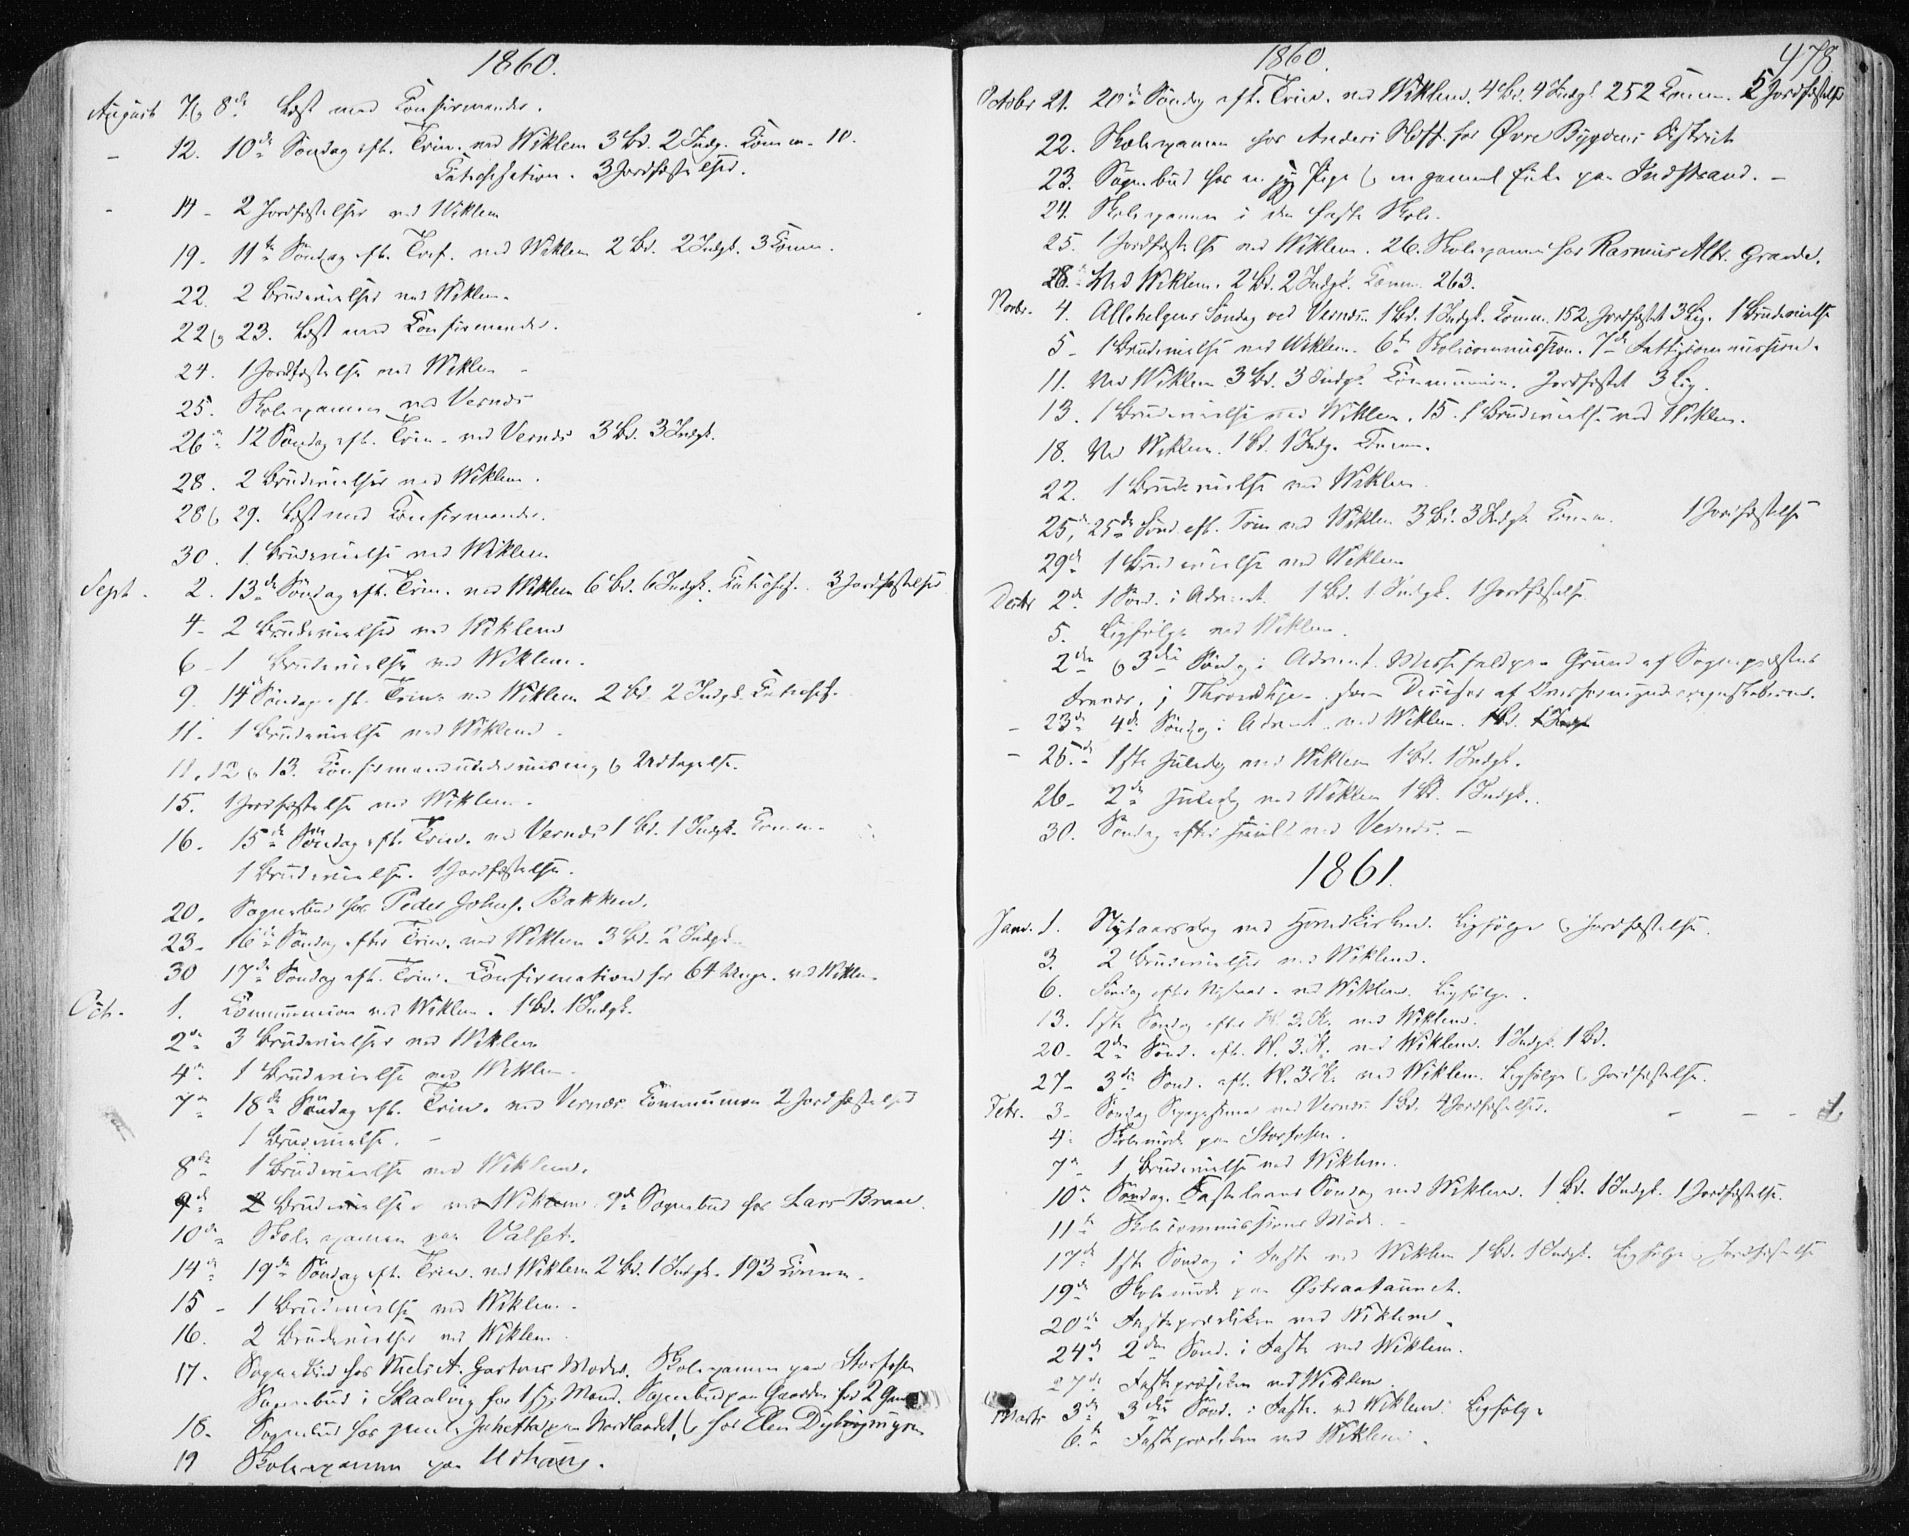 1860.
August 7 & 8de Læst med Confirmander.
– 12. 10de Søndag eft. Trin. ved Wiklem 3 Bd. 2 Indg. Comm. 10.
Catechisation. 3 Jordfæstelser.
– 14 – 2 Jordfæstelser ved Wiklem
19. 11te Søndag eft. Tref. ved Wiklem 2 Bd. 2 Indgk. 3 Comm.
22. 2 Brudevielser ved Wiklem.
22 & 23. Læst med Confirmander.
24. 1 Jordfæstelse ved Wiklem –
25. Skoleexamen ved Vernes
26de 12 Søndag eft. Trin. ved Vernes 3 Bd. 3 Indgk.
28. 2 Brudevielser ved Wiklem.
28 & 29. Læst med Confirmander.
30. 1. Brudevielse ved Wiklem
Sept. 2. 13de Søndag eft. Trin. ved Wiklem 6 Bd. 6 Indgk. Catechis. 3 Jordfæstelser
4 – 2 Brudevielser ved Wiklem
6 – 1 Brudevielse ved Wiklem.
9. 14de Søndag eft. Trin. ved Wiklem 2 Bd. 2 Indgk. Catechis.
11. 1 Brudevielse ved Wiklem.
11, 12 & 13. Confirmandundervisning & Udtagelse.
15. 1 Jordfæstelse ved Wiklem.
16. 15de Søndag eft. Trin. ved Vernes 1 Bd. 1 Indgk. Comm.
1 Brudevielse. 1 Jordfæstelse.
20. Sognebud hos Peder Johns. Bakken.
23 – 16de Søndag efter Trin. ved Wiklem 3 Bd. 2 Indgk.
30 17de Søndag eft. Trin. Confirmation for 64 Unge. ved Wiklem.
Oct. 1. Communion ved Wiklem. 1 Bd. 1 Indgk.
2de 3 Brudevielser ved Wiklem
4de 1 Brudevielse ved Wiklem.
7de 18de Søndag eft. Trin. ved Vernes Communion 2 Jordfæstelser
1 Brudevielse. –
8de 1 Brudevielse ved Wiklem.
9de 2 Brudevielser ved Wiklem. 9de Sognebud hos Lars Braae.
10de Skoleexamen paa Valset.
14de 19de Søndag eft. Trin. ved Wiklem 2 Bd. 1 Indgk. 193 Comm.
15 – 1 Brudevielse ved Wiklem.
16. 2 Brudevielser ved Wiklem
17. Sognebud hos Gartners Moder. Skoleexamen paa Storfosen
Sognebud i for 1 Mand. Sognebud paa for 2
18. Sognebud hos paa Nordlandet, & hos Elen
19 Skoleexamen paa Uthaug.
1860.
478
October 21. 20de Søndag eft. Trin. ved Wiklem. 4 Bd. 4 Indgk. 252 Comm. 5 Jordfæstelse
22. Skoleexamen hos Anders Hoff. for Øvre Bygdens District
23. Sognebud hos en syg Pige & en gammel Enke paa Indstrand. –
24. Skoleexamen i den faste Skole.
25. 1 Jordfæstelse ved Wiklem. 26. Skoleexamen hos Rasmus Alb. Grande.
28. Ved Wiklem. 2 Bd. 2 Indgk. Comm. 263.
Novbr. 4. Allehelgens Søndag ved Vernes. 1 Bd. 1 Indgk. Comm. 152. Jordfæstet 3 Lig. 1 Brudevielse
5 – 1 Brudevielse ved Wiklem. 6te Skolecommission. 7de Fattigcommission.
11. Ved Wiklem 3 Bd. 3 Indgk. Communion. Jordfæstet 3 Lig.
13. 1 Brudevielse ved Wiklem. 15. 1 Brudevielse ved Wiklem.
18. Ved Wiklem. 1 Bd. 1 Indg. Comm.
22. 1 Brudevielse ved Wiklem
25de 25de Sønd. eft. Trin ved Wiklem 3 Bd. 3 Indgk. Comm. 1 Jordfæstelse
29de 1 Brudevielse ved Wiklem
Decbr 2de 1 Sønd. i Advent. 1 Bd. 1 Indgk. 1 Jordfæstelse
5. Ligfølge ved Wiklem.
2den & 3die Søndag i Advent. Messefald paa Grund af Sognepræstens
i Throndhjem Decision af Overformynderregnskaberne.
– 23de 4de Søndag i Advent ved Wiklem. 1 Bd. 1 Indgk
– 25.de 1ste Juledag ved Wiklem 1 Bd. 1 Indgk.
26 – 2de Juledag ved Wiklem 1 Bd. 1 Indgk.
30. Søndag efter Juul ved Vernes. –
1861.
Janr. 1. Nytaarsdag ved Hovedkirken. Ligfølge & Jordfæstelse.
3. 2 Brudevielser ved Wiklem.
6. Søndag efter Nytaar. ved Wiklem. Ligfølge.
13. 1ste Søndag efter H. 3. K. ved Wiklem.
20 – 2den Sønd. eft. H. 3. K. ved Wiklem. 1 Indgk. 1 Bd.
27 – 3die Sønd. eft. H. 3. K. ved Wiklem. Ligfølge & Jordfæstelse.
Febr. 3 – Søndag Sexagesima ved Vernes 1 Bd. 4 Jordfæstelser. – – – 1.
4. Skolemøde paa Storfosen.
7de 1 Brudevielse ved Wiklem.
10de Søndag. Fastelavns Søndag ved Wiklem. 1 Bd. 1 Indgk. 1 Jordfæstelse.
11te Skolecommissions Møde. –
17de 1ste Søndag i Faste ved Wiklem 1 Bd. 1 Indgk. Ligfølge & Jordfæstelse
19de Skolemøde paa Østraataunet.
20de Fasteprædiken ved Wiklem.
24de 2den Sønd. i Faste ved Wiklem.
27de Fasteprædiken ved Wiklem.
Marts 3de 3die Sønd. i Faste. ved Wiklem. Ligfølge
6te Fasteprædiken ved Wiklem.